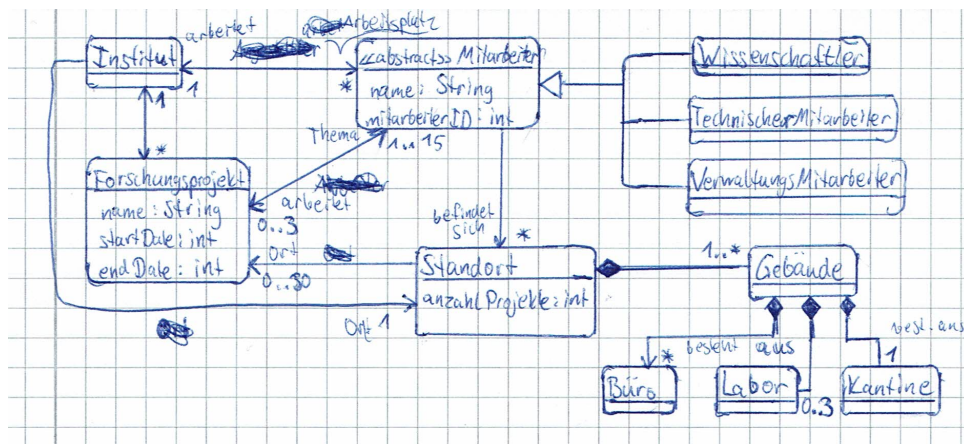 arbeitet
Arbeitsplatz
Institut
1
1
*
<<abstracts>> Mitarbeiter
name: String
mitarbeiterID: int
1..15
Wissenschaftler
TechnischerMitarbeiter
VerwaltungsMitarbeiter
*
Thema
Forschungsprojekt
name: String
startDate: int
endDate: int
arbeitet
0..3
Ort
0..80
befindet
sich
*
Standort
anzahlProjekte: int
Ort 1
1..*
Gebäude
besteht aus
best. aus
*
1
Büro
Labor
0.3
Kantine